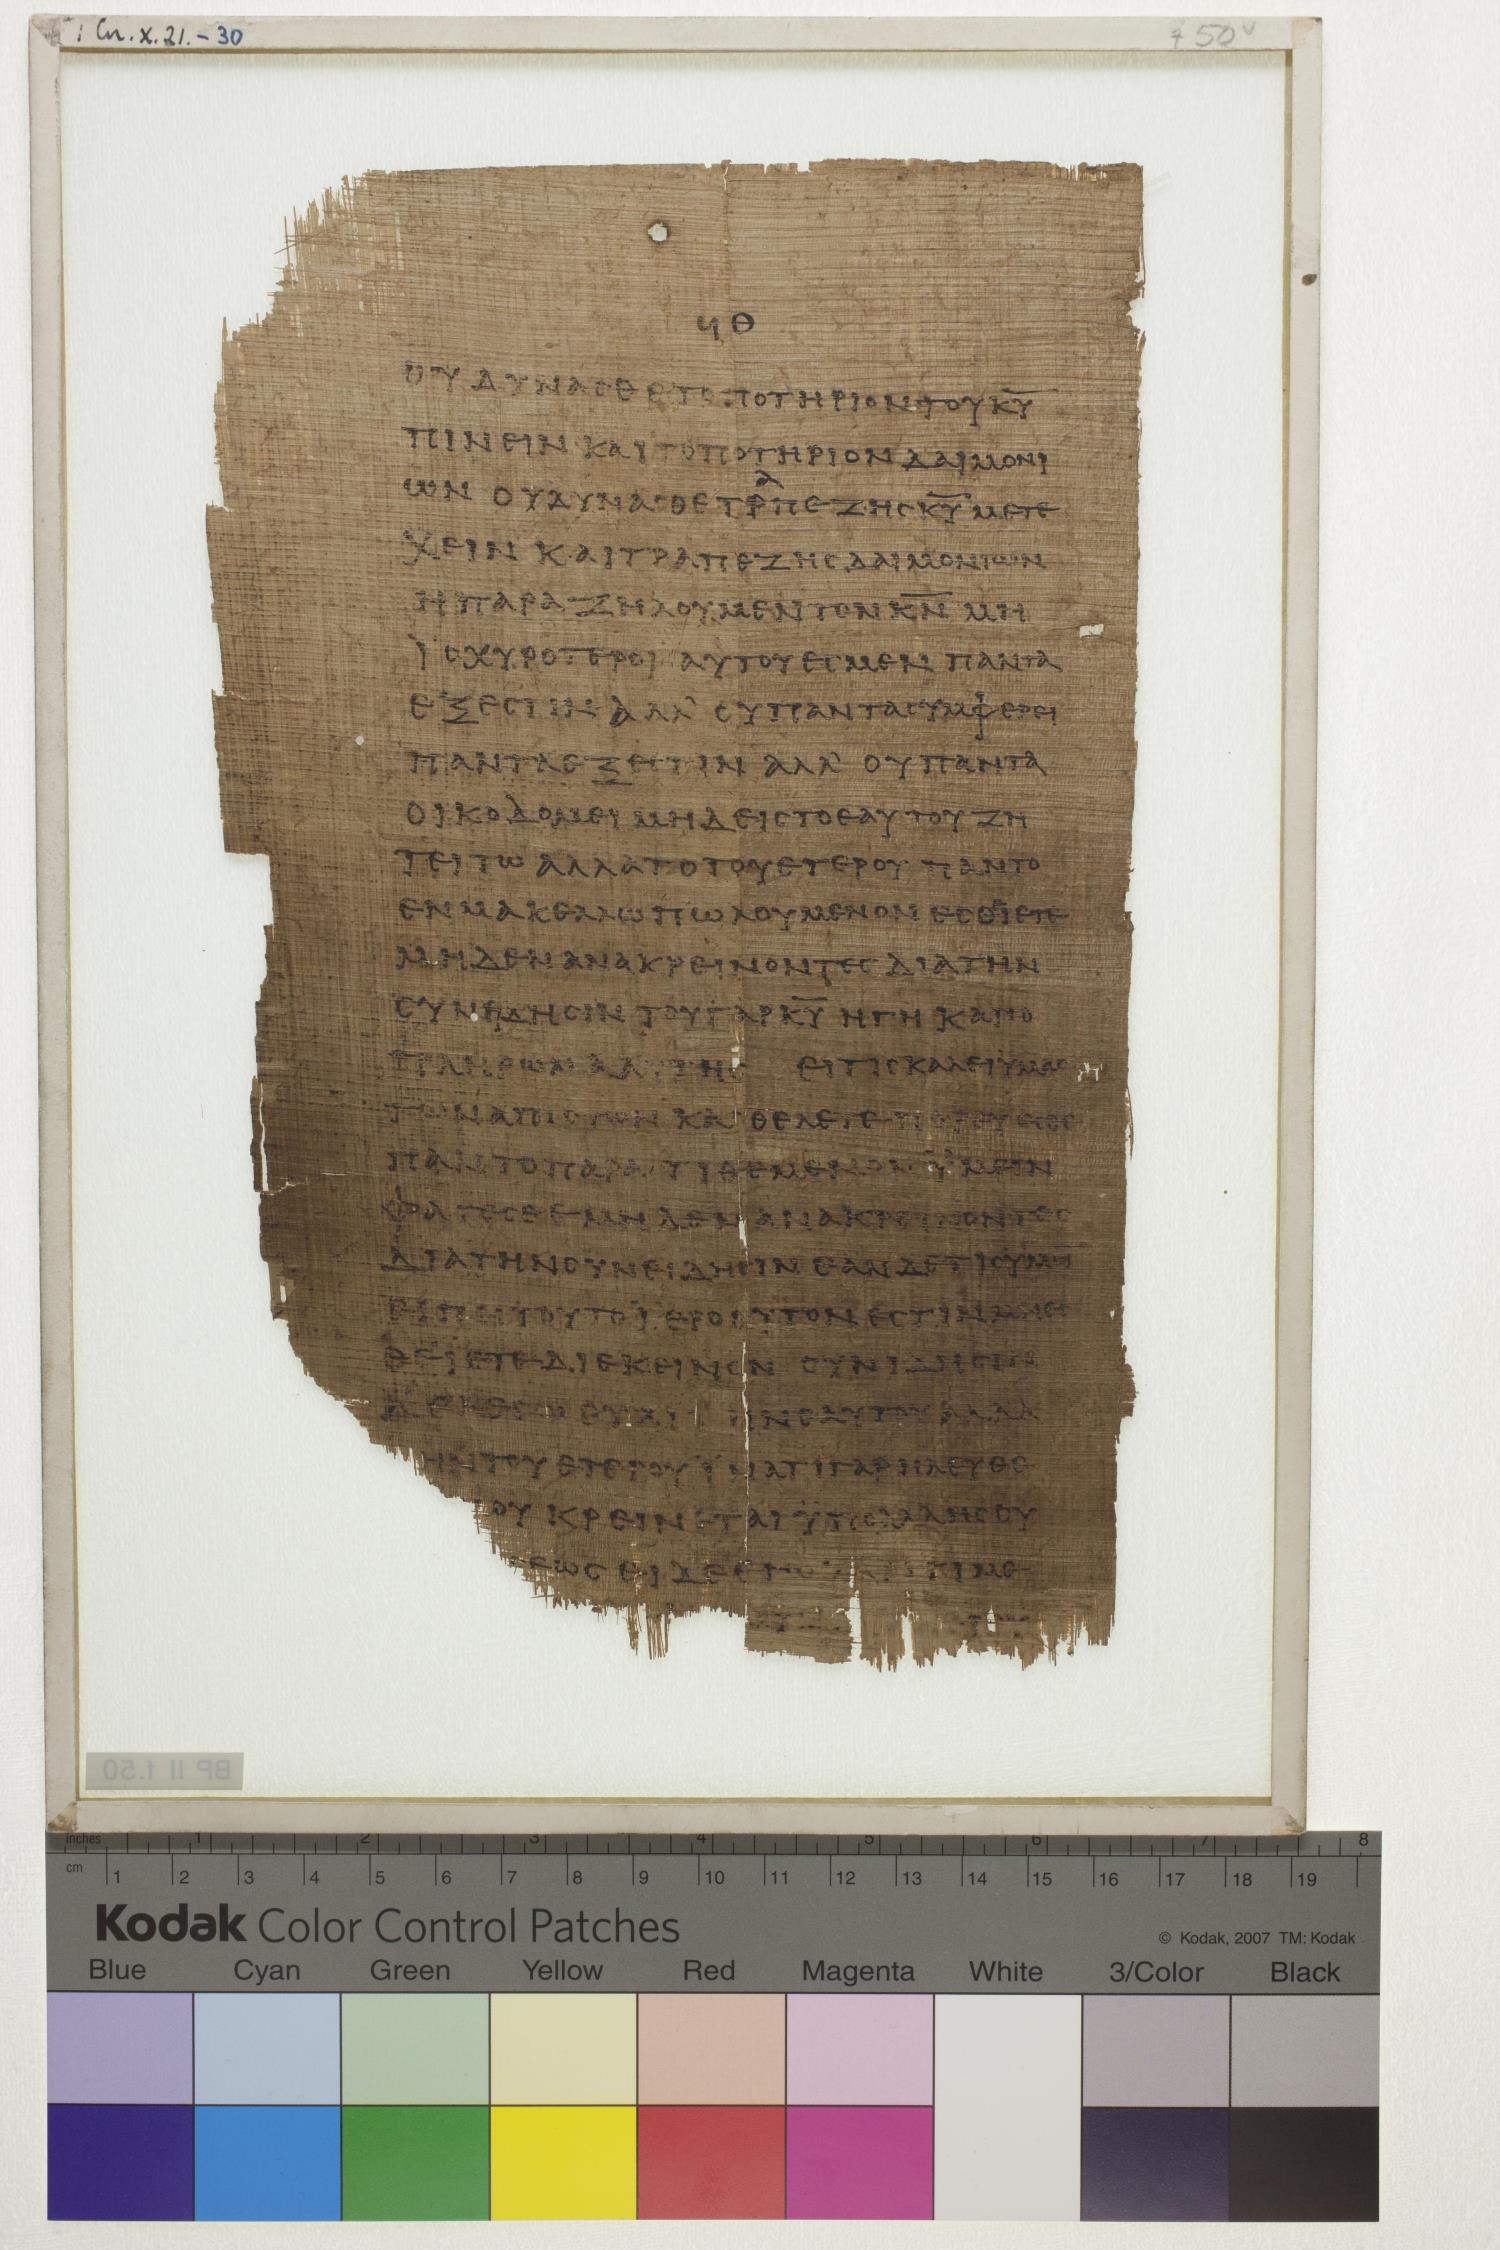 1 Cn. x. 21. - 30
f 50 v
ϥθ
ου δυναϲθε το ποτηριον του κ̅υ̅
πινειν και το ποτηριον δαιμονι
ων ου δυναϲθε τρ`α´πεζηϲ κ̅υ̅ μετε
χειν και τραπεζηϲ δαιμονιων
η παραζηλουμεν τον κ̅ν̅ μη
ϊϲχυροτεροι αυτου εϲμεν παντα
εξεϲτιν αλλ’ ου παντα ϲυμφερει
παντα εξεϲτιν αλλ’ ου παντα
οικοδομει μηδειϲ το εαυτου ζη
τειτω αλλα το του ετερου παν το
εν μακελλω πωλουμενον εϲθϊετε
μηδεν ανακρεινοντεϲ δια την
ϲυνιδηϲιν του γαρ κ̅υ̅ η γη και το
πληρωμα αυτηϲ ει τιϲ καλει ϋμαϲ
των απιϲτων και θελετε πορευεϲθε
παν το παρατιθεμενον ϋμειν
μηδεν ανακρεινοντεϲ
δια την ϲυνειδηϲιν εαν δε τιϲ ϋμιν
ειπη τουτο ϊεροθυτον εϲτιν μη εϲ
θειετε δι εκεινον ϲυνιδηϲιν
εαυτου αλλα
ην του ετερου ϊνα τι γαρ η ελευθε
ου κρεινεται ϋπο αλληϲ ϲυ
εωϲ ει δε ε τι με
BP II f.50
inches 1 2 3 4 5 6 7 8
cm 1 2 3 4 5 6 7 8 9 10 11 12 13 14 15 16 17 18 19
Kodak Color Control Patches
© Kodak, 2007 TM: Kodak
Blue Cyan Green Yellow Red Magenta White 3/Color Black